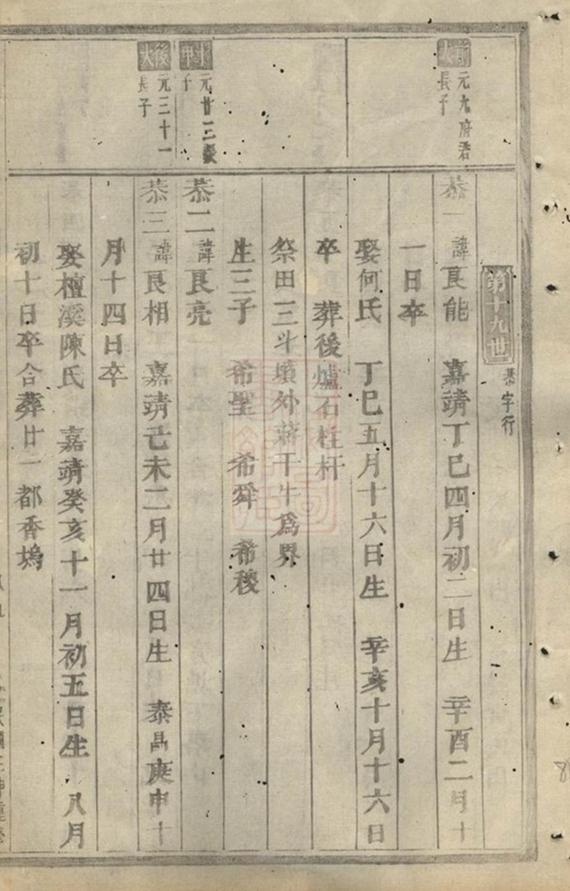 第十九世 恭字行
元九府君長子
恭一 諱良能 嘉靖丁巳四月初二日生 辛酉二月十
一日卒
娶何氏 丁巳五月十六日生 辛亥十月十六日
卒 葬後爐石柱杆
祭田三斗墳外蔣干牛為界
生三子 希聖 希舜 希稷
元廿三 子
恭二 諱良亮
後大 元三十一長子
恭三 諱良相 嘉靖己未二月廿四日生 泰昌庚申十
月十四日卒
娶檀溪陳氏 嘉靖癸亥十一月初五日生 八月
初十日卒合葬廿一都香塢